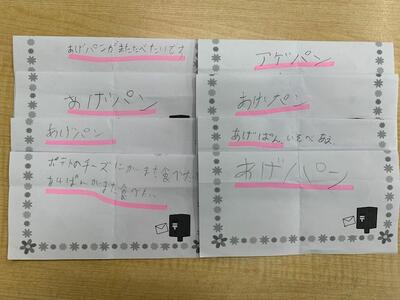 あげパンがまたたべたいです
あげパン
あげパン
ポテトのチーズ
また食べた
あげぱんがまた食べたい
アゲパン
あげパン
あげぱん、いもべあ
あげパン
〒
〒